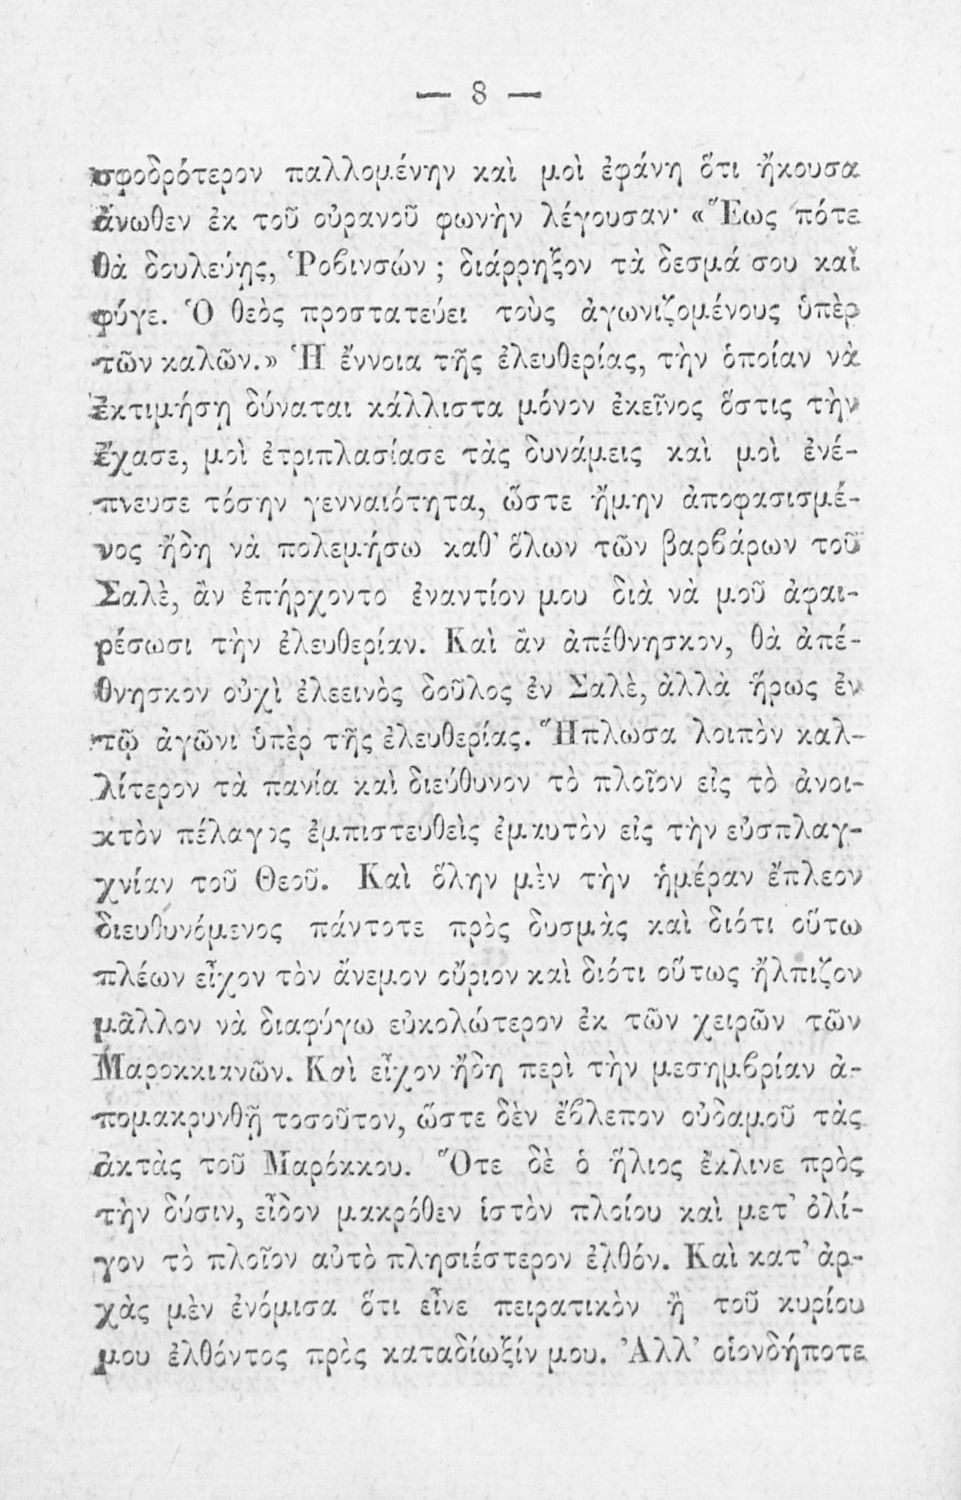 — 8 —
σφοδρότερον παλλομένην καὶ μοὶ ἐφάνη ὅτι ἤκουσα
ἄνωθεν ἐκ τοῦ οὐρανοῦ φωνὴν λέγουσαν· «Ἕως πότε
θὰ δουλεύῃς, Ῥοβινσών ; διάρρηξον τὰ δεσμά σου καὶ
φύγε. Ὁ θεὸς προστατεύει τοὺς ἀγωνιζομένους ὑπὲρ
τῶν καλῶν.» Ἡ ἔννοια τῆς ἐλευθερίας, τὴν ὁποίαν νὰ
ἐκτιμήσῃ δύναται κάλλιστα μόνον ἐκεῖνος ὅστις τὴν
ἔχασε, μοὶ ἐτριπλασίασε τὰς δυνάμεις καὶ μοὶ ἐνέ-
πνευσε τόσην γενναιότητα, ὥστε ἤμην ἀποφασισμέ-
νος ἤδη νὰ πολεμήσω καθ' ὅλων τῶν βαρβάρων τοῦ
Σαλὲ, ἂν ἐπήρχοντο ἐναντίον μου διὰ νὰ μοῦ ἀφαι-
ρέσωσι τὴν ἐλευθερίαν. Καὶ ἂν ἀπέθνησκον, θὰ ἀπέ-
θνησκον οὐχὶ ἐλεεινὸς δοῦλος ἐν Σαλὲ, ἀλλὰ ἥρως ἐν
τῷ ἀγῶνι ὑπὲρ τῆς ἐλευθερίας. Ἥπλωσα λοιπὸν καλ-
λίτερον τὰ πανία καὶ διεύθυνον τὸ πλοῖον εἰς τὸ ἀνοι-
κτὸν πέλαγος ἐμπιστευθεὶς ἐμαυτὸν εἰς τὴν εὐσπλαγ-
χνίαν τοῦ Θεοῦ. Καὶ ὅλην μὲν τὴν ἡμέραν ἔπλεον
διευθυνόμενος πάντοτε πρὸς δυσμὰς καὶ διότι οὕτω
πλέων εἶχον τὸν ἄνεμον οὔριον καὶ διότι οὕτως ἤλπιζον
μᾶλλον νὰ διαφύγω εὐκολώτερον ἐκ τῶν χειρῶν τῶν
Μαροκκιανῶν. Καὶ εἶχον ἤδη περὶ τὴν μεσημβρίαν ἀ-
πομακρυνθῆ τοσοῦτον, ὥστε δὲν ἔβλεπον οὐδαμοῦ τὰς
ἀκτὰς τοῦ Μαρόκκου. Ὅτε δὲ ὁ ἥλιος ἔκλινε πρὸς
τὴν δύσιν, εἶδον μακρόθεν ἱστὸν πλοίου καὶ μετ' ὀλί-
γον τὸ πλοῖον αὐτὸ πλησιέστερον ἐλθόν. Καὶ κατ' ἀρ-
χὰς μὲν ἐνόμισα ὅτι εἶνε πειρατικὸν ἢ τοῦ κυρίου
μου ἐλθόντος πρὸς καταδίωξίν μου. Ἀλλ' οἱονδήποτε